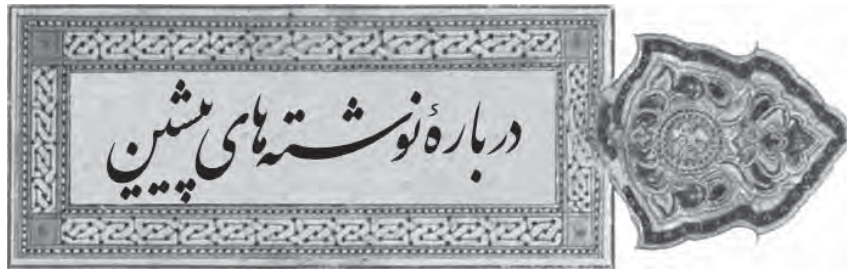 دربارۀ نوشته‌های پیشین